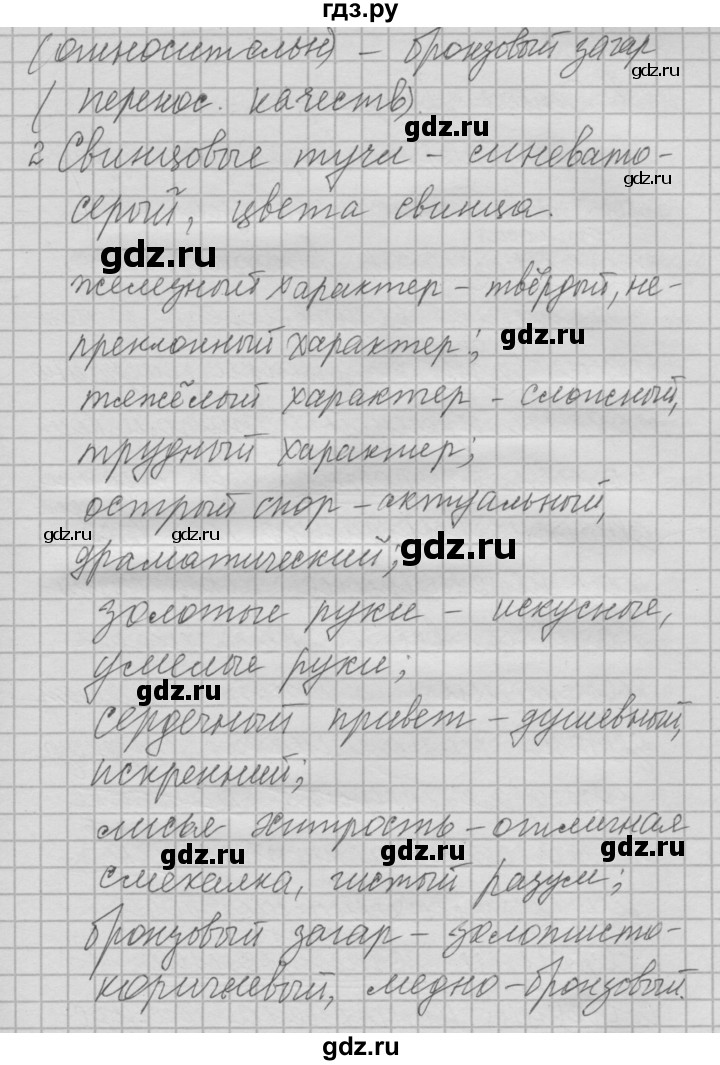 гдз.ру
(относительн) – бронзовый загар
gdz.ru
( перенос. качеств).
gdz.ru
2 Свинцовые тучи – синевато-
gdz.ru
серый, цвета свинца.
gdz.ru
железный характер – твёрдый, не-
преклонный характер;
gdz.ru
тяжёлый характер – сложный,
трудный характер;
острый спор – актуальный,
gdz.ru gdz.ru gdz.ru gdz.ru
драматический;
золотые руки – искусные,
умелые руки;
gdz.ru
сердечный привет – душевный,
искренний;
лисья хитрость – отличная
gdz.ru gdz.ru gdz.ru
смекалка, чистый разум;
бронзовый загар – золотисто-
коричневый, медно-бронзовый.
gdz.ru